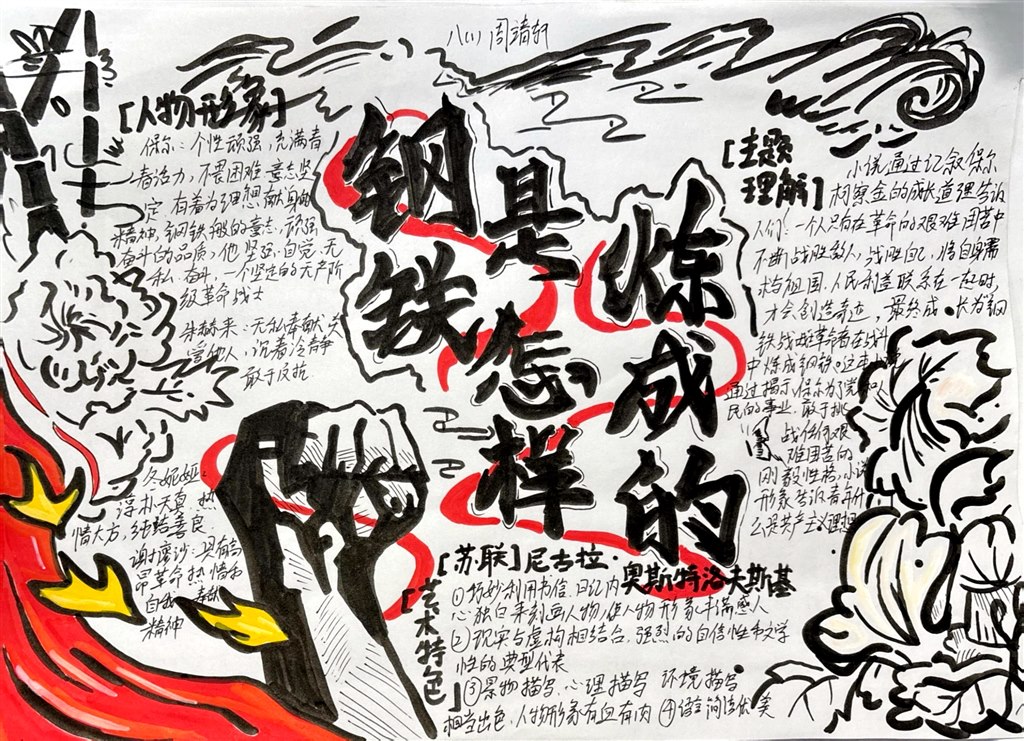 八(1) 周靖轩
钢铁
是怎样
炼成的
[苏联]尼古拉·
奥斯特洛夫斯基
[人物形象]
保尔:个性顽强,充满青
春活力,不畏困难,意志坚
定,有着为理想献身的
精神,钢铁般的意志,顽强
奋斗的品质,他坚强、自觉、无
私、奋斗,一个坚定的无产阶
级革命战士
朱赫来:无私奉献,关
爱他人,沉着冷静
敢于反抗
冬妮娅:
淳朴天真,热
情大方,纯结善良
谢廖沙:具有高
昂革命热情和
自我
精神
[主题
理解]
小说通过记叙保尔
柯察金的成长道理告诉
人们:一个人只有在革命的艰难困苦中
不断战胜敌人,战胜自己,将自身需
求与祖国、人民利益联系在一起时,
才会创造奇迹,最终成长为钢
铁战略革命者在战斗
中炼成钢铁。这本
通过揭示保尔为了党和人
民的事业,敢于挑
战任何艰
难困苦的
刚毅性格,小说
形象告诉青年什
么是共产主义理想
[艺术特色]
①巧妙利用书信、日记、内
心独白来刻画人物,使人物形象丰满感人
②现实与虚构相结合,强烈的自信性和文学
性的典型代表
③景物描写、心理描写、环境描写
相当出色,人物形象有血有肉 ④语言简洁优美